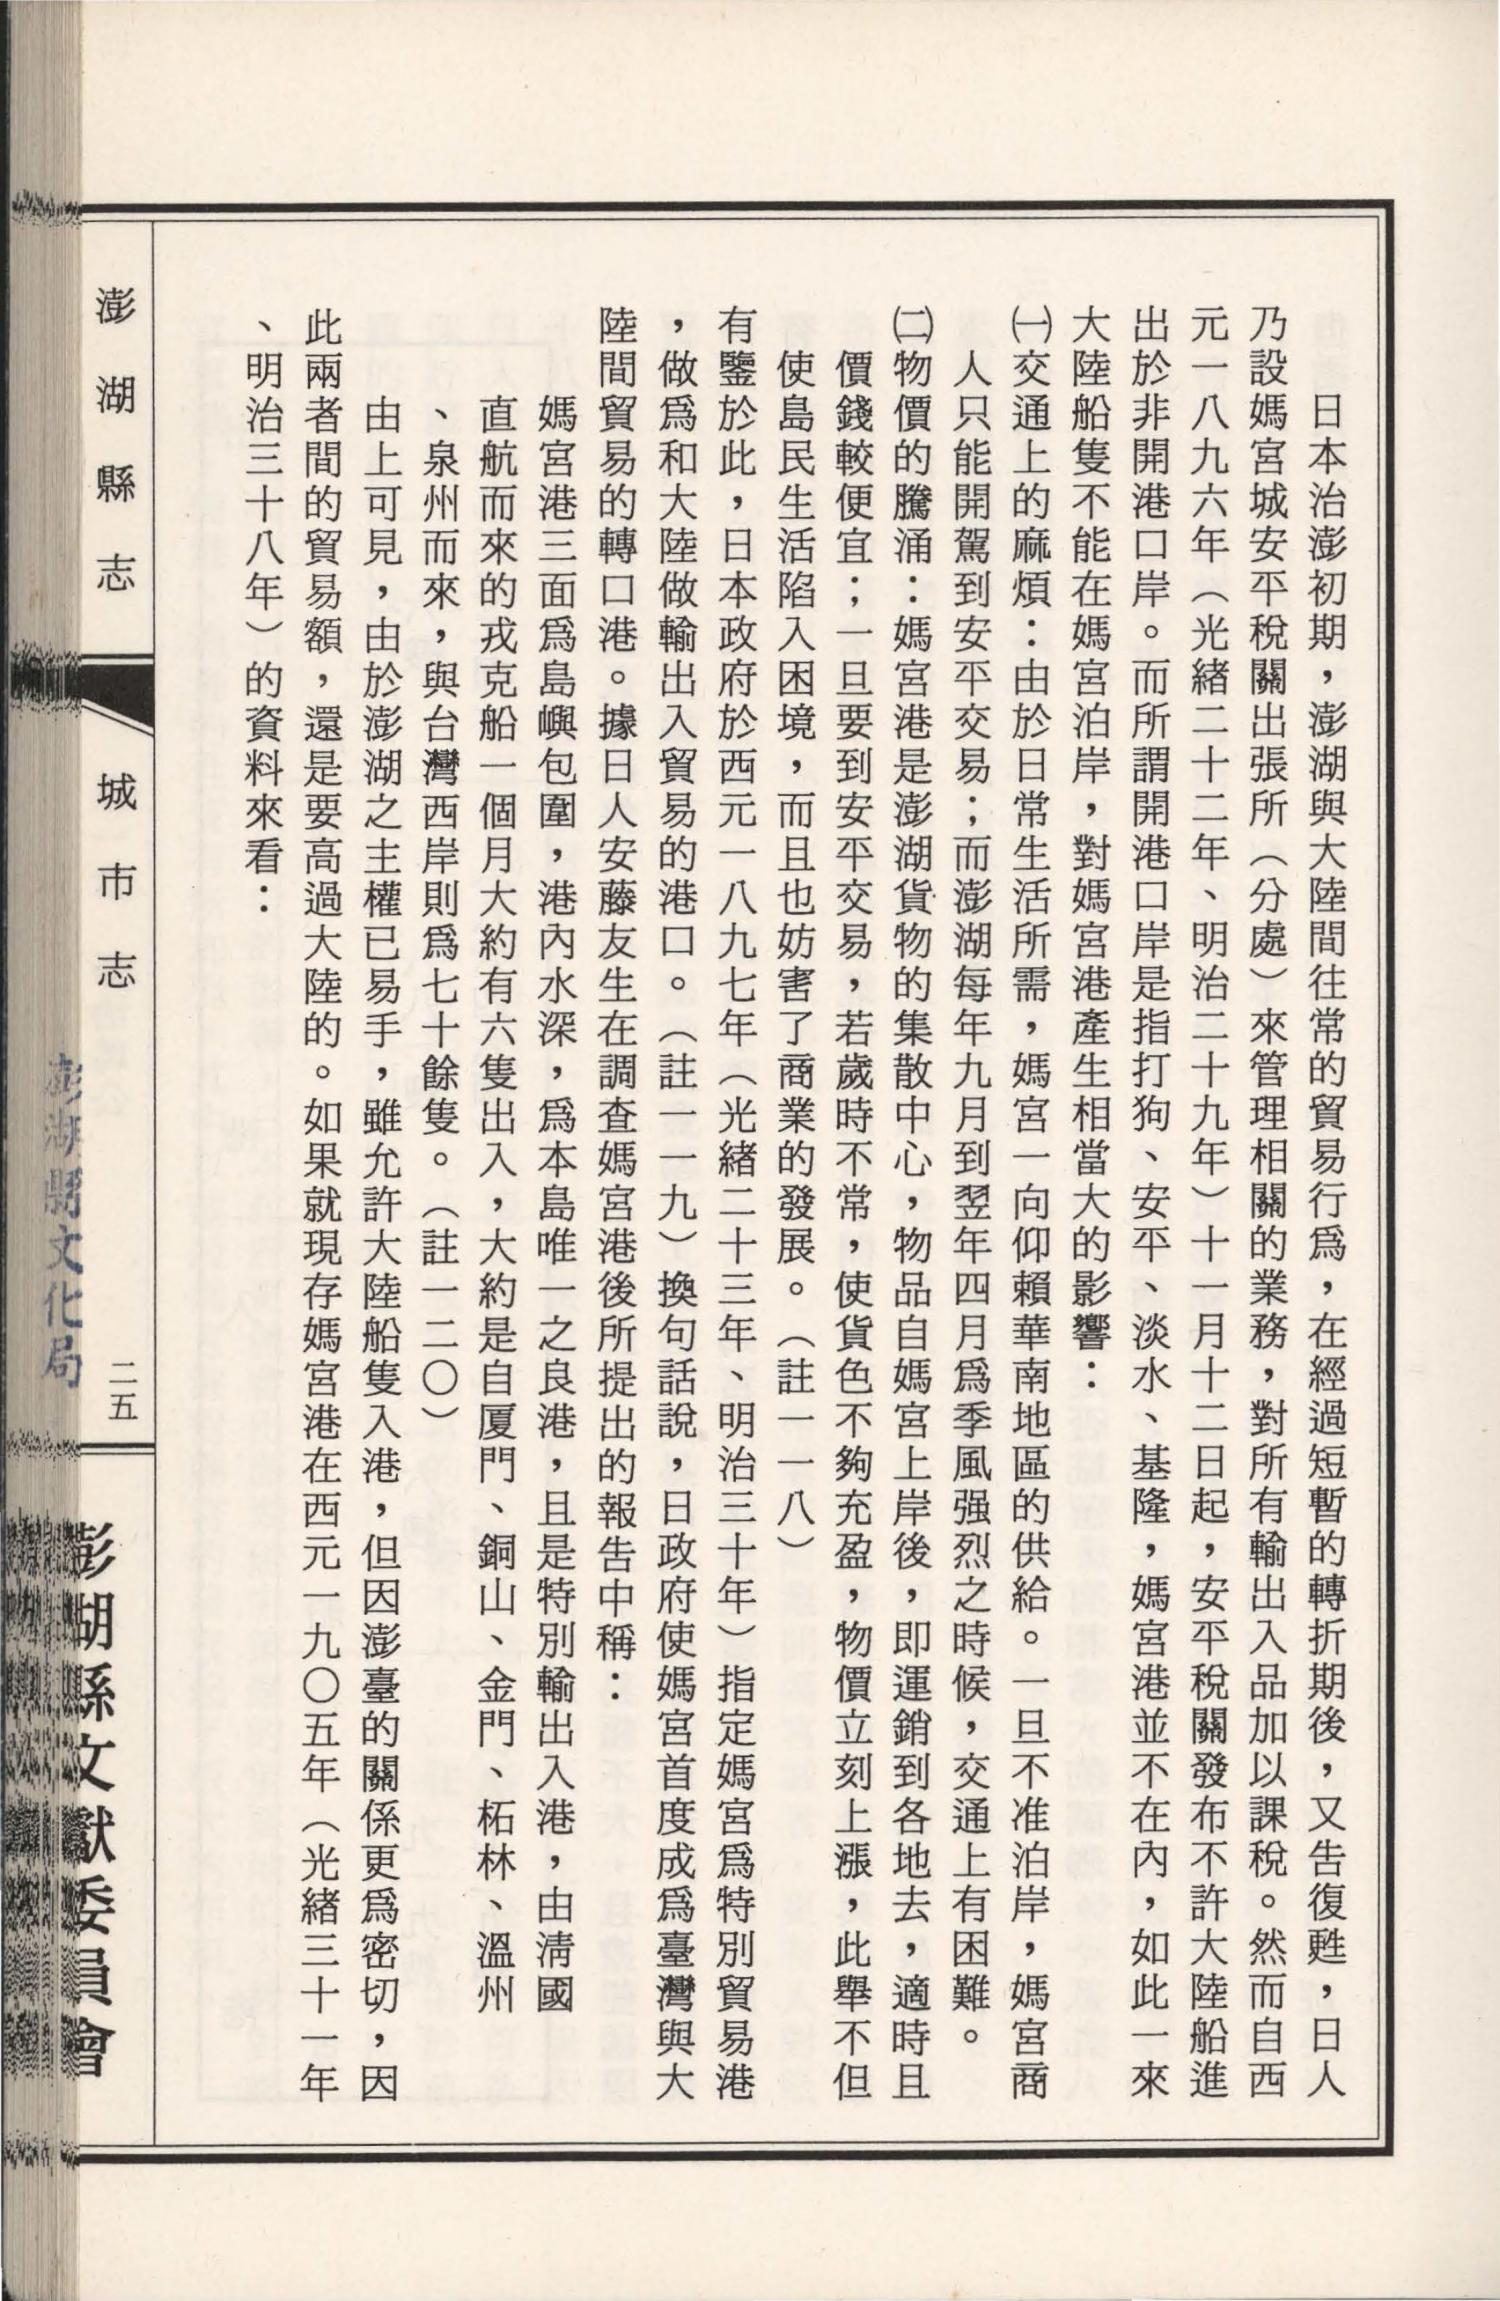 日本治澎初期，澎湖與大陸間往常的貿易行爲，在經過短暫的轉折期後，又告復甦，日人
乃設媽宮城安平稅關出張所（分處）來管理相關的業務，對所有輸出入品加以課稅。然而自西
元一八九六年（光緒二十二年、明治二十九年）十一月十二日起，安平稅關發布不許大陸船進
出於非開港口岸。而所謂開港口岸是指打狗、安平、淡水、基隆，媽宮港並不在內，如此一來
大陸船隻不能在媽宮泊岸，對媽宮港產生相當大的影響：
㈠交通上的麻煩：由於日常生活所需，媽宮一向仰賴華南地區的供給。一旦不准泊岸，媽宮商
人只能開駕到安平交易；而澎湖每年九月到翌年四月爲季風强烈之時候，交通上有困難。
㈡物價的騰涌：媽宮港是澎湖貨物的集散中心，物品自媽宮上岸後，即運銷到各地去，適時且
價錢較便宜；一旦要到安平交易，若歲時不常，使貨色不夠充盈，物價立刻上漲，此舉不但
使島民生活陷入困境，而且也妨害了商業的發展。（註一一八）
有鑒於此，日本政府於西元一八九七年（光緒二十三年、明治三十年）指定媽宮爲特別貿易港
，做爲和大陸做輸出入貿易的港口。（註一一九）換句話說，日政府使媽宮首度成爲臺灣與大
陸間貿易的轉口港。據日人安藤友生在調查媽宮港後所提出的報告中稱：
媽宮港三面爲島嶼包圍，港內水深，爲本島唯一之良港，且是特別輸出入港，由淸國
直航而來的戎克船一個月大約有六隻出入，大約是自厦門、銅山、金門、柘林、溫州
、泉州而來，與台灣西岸則爲七十餘隻。（註一二〇）
由上可見，由於澎湖之主權已易手，雖允許大陸船隻入港，但因澎臺的關係更爲密切，因
此兩者間的貿易額，還是要高過大陸的。如果就現存媽宮港在西元一九〇五年（光緒三十一年
、明治三十八年）的資料來看：
澎湖縣志
城市志
二五
澎湖縣文獻委員會
澎湖縣文化局